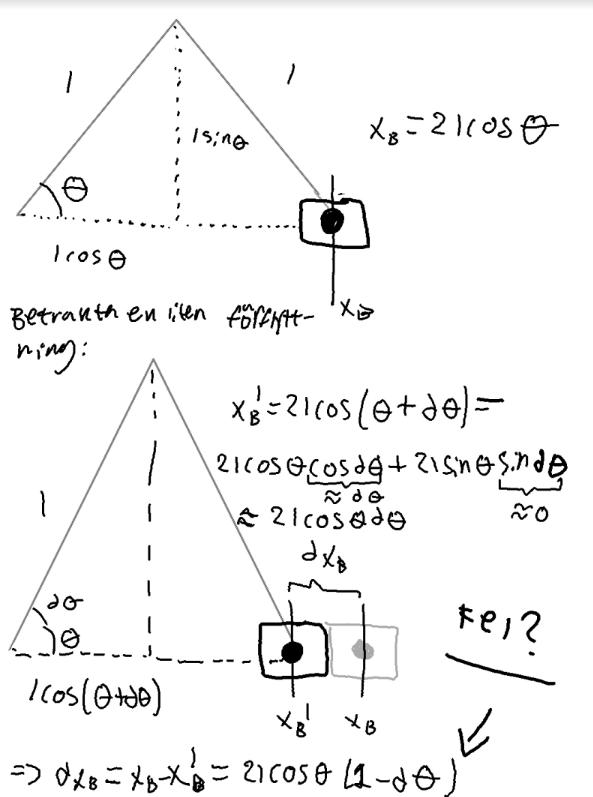 l
l
l sin θ
x_B = 2 l cos θ
θ
l cos θ
x_B
Betrakta en liten förflytt-
ning:
x_B' = 2 l cos(θ + dθ) =
2 l cos θ cos dθ + 2 l sin θ sin dθ
≈ dθ
≈ 0
≈ 2 l cos θ dθ
l
dx_B
dθ
θ
Fel?
l cos(θ+dθ)
x_B' x_B
=> dx_B = x_B - x_B' = 2 l cos θ (1 - dθ)